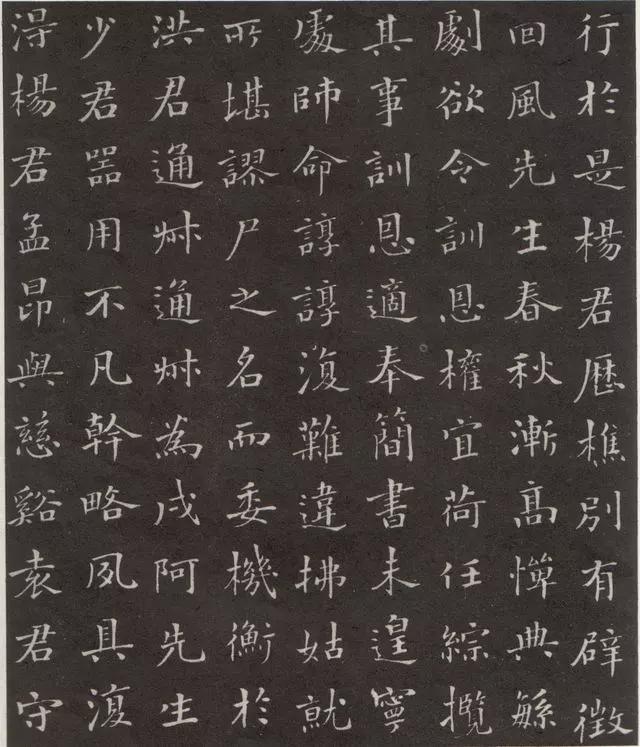 行於是楊君歷樵別有辟徵
回風先生春秋漸高憚典緐
劇欲令訓恩權宜荷任綜攬
其事訓恩適奉簡書未遑寧
處師命諄諄復難違拂姑就
所堪謬尸之名而委機衡於
洪君通艸通艸為戌阿先生
少君器用不凡幹略夙具復
淂楊君孟昂與慈谿袁君守